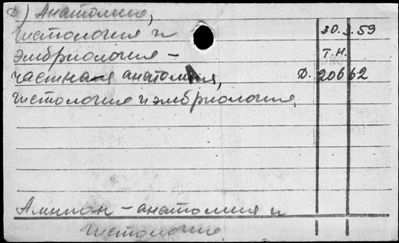 д) Анатомия,
гистология и 30.3.59
эмбриология - Т.Н.
частная анатомия, Д. 20662
гистология и эмбриология,
Амнион - анатомия и
гистология